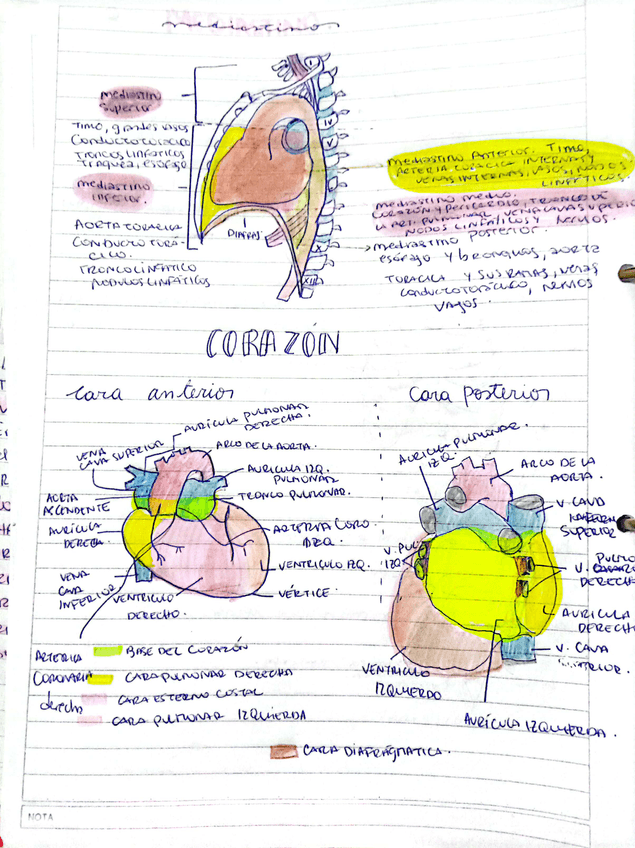 mediastino
mediastino
superior
Timo, grandes vasos
Conducto toracico
Troncos linfáticos
Traquea, esofago
mediastino
inferior.
AORTA TORACICA
CONDUCTO TORA-
CICO.
TRONCO LINFÁTICO
NODULOS LINFÁTICOS
IV
V
X
XII
DIAFRAG.
mediastino Anterior. Timo,
ARTERIA TORACICA INTERNAS Y
VENAS INTERNAS, VASOS, NODOS
LINFÁTICOS.
mediastino medio.
CORAZON Y PERICARDIO, TRONCO DE
LA ART. PULMONAR, VENA CAVA SUPERIO
NODOS LINFÁTICOS Y NERVIOS.
mediastino posterior.
esófago y bronquios, aorta
TORACICA Y SUS RAMAS, venas
conducto torácico, nervios
VAGOS.
CORAZÓN
cara anterior
AURÍCULA PULMONAR
DERECHA.
VENA
CAVA SUPERIOR
ARCO DE LA AORTA.
AURICULA IZQ.
PULMONAR
TRONCO PULMONAR.
AORTA
ASCENDENTE
AURÍCULA
DERECHA
ARTERIA CORO.
IZQ.
VENTRICULO IZQ.
VENA
CAVA
INFERIOR
VENTRICULO
DERECHO.
VÉRTICE.
ARTERIA
CORONARIA
derecha
BASE DEL CORAZÓN
CARA PULMONAR DERECHA
CARA ESTERNO COSTAL
CARA PULMONAR IZQUIERDA
CARA DIAFRAGMATICA.
Cara posterior
AURÍCULA PULMONAR.
IZQ.
ARCO DE LA
AORTA.
V. CAVA
SUPERIOR
V. PUL
IZQ.
V.
PULMO
DERECHA
AURICULA
DERECHA
V. CAVA
VENTRICULO
IZQUIERDO
AURÍCULA IZQUIERDA.
NOTA